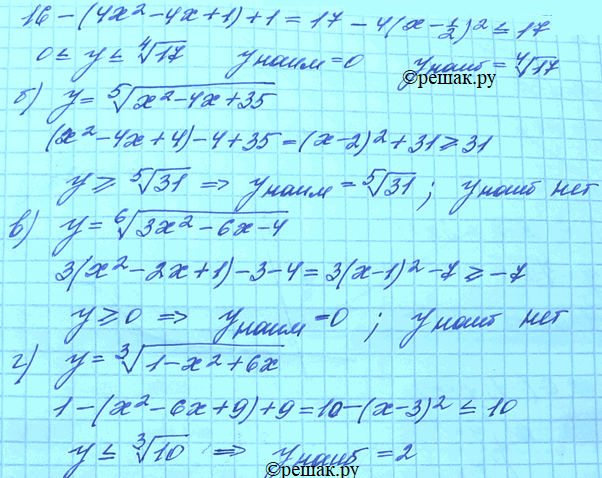 16 - (4x² - 4x + 1) + 1 = 17 - 4(x - 1/2)² ≤ 17
0 ≤ y ≤ ⁴√17 yнаим = 0 yнаиб = ⁴√17
©решак.ру
б) y = ⁵√(x² - 4x + 35)
(x² - 4x + 4) - 4 + 35 = (x - 2)² + 31 ≥ 31
y ≥ ⁵√31 ⇒ yнаим = ⁵√31 ; yнаиб нет
в) y = ⁶√(3x² - 6x - 4)
3(x² - 2x + 1) - 3 - 4 = 3(x - 1)² - 7 ≥ -7
y ≥ 0 ⇒ yнаим = 0 ; yнаиб нет
г) y = ³√(1 - x² + 6x)
1 - (x² - 6x + 9) + 9 = 10 - (x - 3)² ≤ 10
y ≤ ³√10 ⇒ yнаиб = 2
©решак.ру